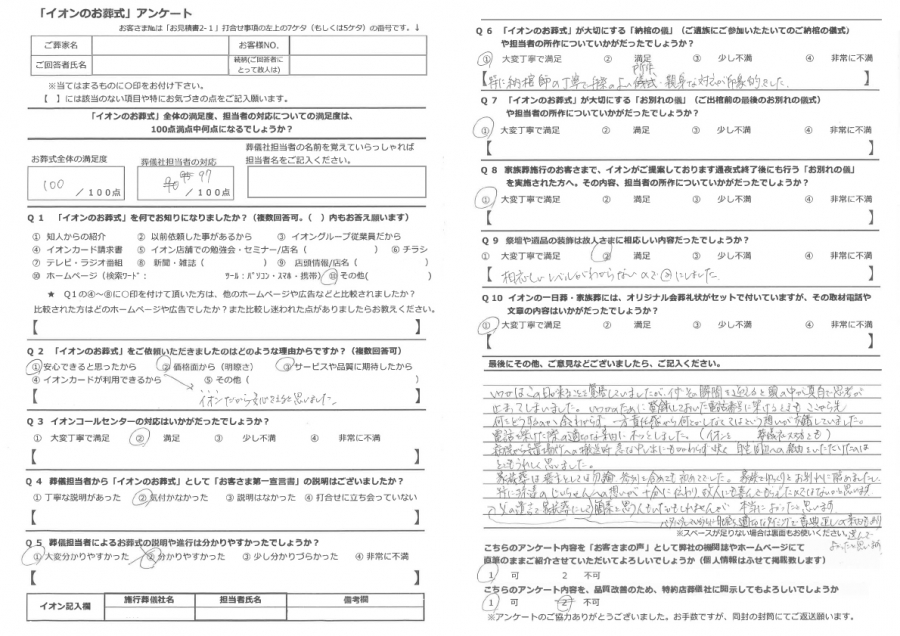 「イオンのお葬式」アンケート
お客さま№は「お見積書2-1」打合せ事項の左上の7ケタ（もしくは5ケタ）の番号です。↓
ご葬家名
お客様NO.
ご回答者氏名
続柄(ご回答者に
とって故人は)
※当てはまるものに○印をお付け下さい。
【 】には該当のない項目や特にお気づきの点をご記入願います。
「イオンのお葬式」全体の満足度、担当者の対応についての満足度は、
100点満点中何点になるでしょうか？
お葬式全体の満足度
葬儀社担当者の対応
葬儀社担当者の名前を覚えていらっしゃれば
担当者名をご記入ください。
100 / 100点
97 / 100点
Q 1 「イオンのお葬式」を何でお知りになりましたか？（複数回答可。（ ）内もお答え願います）
① 知人からの紹介 ② 以前依頼した事があるから ③ イオングループ従業員だから
④ イオンカード請求書 ⑤ イオン店舗での勉強会・セミナー/店名（ ） ⑥ チラシ
⑦ テレビ・ラジオ番組 ⑧ 新聞・雑誌（ ） ⑨ 店頭情報/店名（ ）
⑩ ホームページ（検索ﾜｰﾄﾞ： ﾂｰﾙ：ﾊﾟｿｺﾝ・ｽﾏﾎ・携帯） ⑪ その他( )
★ Q１の④～⑧に○印を付けて頂いた方は、他のホームページや広告などと比較されましたか？
比較された方はどのホームページや広告でしたか？また比較し迷われた点がありましたらお教えください。
【 】
Q 2 「イオンのお葬式」をご依頼いただきましたのはどのような理由からですか？（複数回答可）
① 安心できると思ったから ② 価格面から（明瞭さ） ③ サービスや品質に期待したから
④ イオンカードが利用できるから ⑤ その他（ ）
【 イオンだから安心できると思いました。 】
Q 3 イオンコールセンターの対応はいかがだったでしょうか？
① 大変丁寧で満足 ② 満足 ③ 少し不満 ④ 非常に不満
【 】
Q 4 葬儀担当者から「イオンのお葬式」として「お客さま第一宣言書」の説明はございましたか？
① 丁寧な説明があった ② 気付かなかった ③ 説明はなかった ④ 打合せに立ち会っていない
【 】
Q 5 葬儀担当者によるお葬式の説明や進行は分かりやすかったでしょうか？
① 大変分かりやすかった ② 分かりやすかった ③ 少し分かりづらかった ④ 非常に不満
【 】
イオン記入欄
施行葬儀社名
担当者氏名
備考欄
Q 6 「イオンのお葬式」が大切にする「納棺の儀」（ご遺族にご参加いただいてのご納棺の儀式）
や担当者の所作についていかがだったでしょうか？
① 大変丁寧で満足 ② 満足 ③ 少し不満 ④ 非常に不満
【 特に納棺師の丁寧で手際のよい儀式・親身な対応が印象的でした。 】
Q 7 「イオンのお葬式」が大切にする「お別れの儀」（ご出棺前の最後のお別れの儀式）
や担当者の所作についていかがだったでしょうか？
① 大変丁寧で満足 ② 満足 ③ 少し不満 ④ 非常に不満
【 】
Q 8 家族葬施行のお客さまで、イオンがご提案しております通夜式終了後にも行う「お別れの儀」
を実施された方へ。その内容、担当者の所作についていかがだったでしょうか？
① 大変丁寧で満足 ② 満足 ③ 少し不満 ④ 非常に不満
【 】
Q 9 祭壇や遺品の装飾は故人さまに相応しい内容だったでしょうか？
① 大変丁寧で満足 ② 満足 ③ 少し不満 ④ 非常に不満
【 相応しいレベルがわからないので②にしました 】
Q 10 イオンの一日葬・家族葬には、オリジナル会葬礼状がセットで付いていますが、その取材電話や
文章の内容はいかがだったでしょうか？
① 大変丁寧で満足 ② 満足 ③ 少し不満 ④ 非常に不満
【 】
最後にその他、ご意見などございましたら、ご記入ください。
いつかはこの日が来ることを覚悟していましたが、
止まってしまいました。いつかのために登録しておいた電話番号に
電話を掛けた際の適切な案内にホッとしました。（イオンも 葬儀社スタッフも）
とてもうれしく思いました。
家族葬は
本当によかったと思います
※スペースが足りない場合は裏面もお使いください。
こちらのアンケート内容を「お客さまの声」として弊社の機関誌やホームページにて
直筆のままご紹介させていただいてよろしいでしょうか（個人情報はふせて掲載致します）
1 可 2 不可
こちらのアンケート内容を、品質改善のため、特約店葬儀社に開示してもよろしいでしょうか
1 可 2 不可
※アンケートのご協力ありがとうございました。お手数ですが、同封の封筒にてご返送願います。